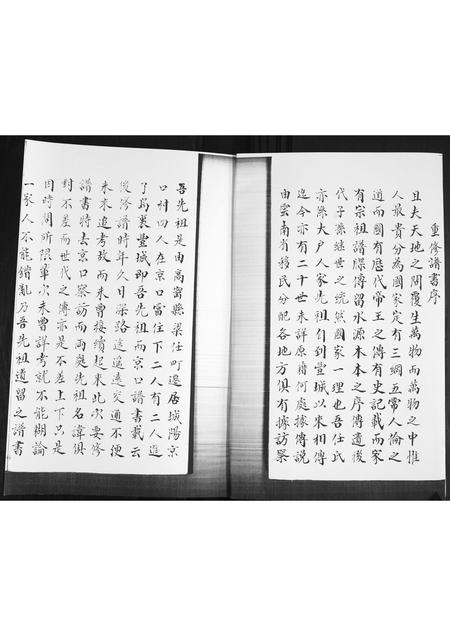 重修譜書序
且夫天地之間覆生萬物而萬物之中惟
人最貴分為國家定有三綱五常人倫之
道而國有歷代帝王之傳有史記載而家
有宗祖譜牒傳留水源木本之序傳遺後
代子孫繼世之統然國家一理也吾任氏
亦係大戶人家先祖自到豐城以來相傳
迄今亦有二十世未詳原籍何處據傳說
由雲南省移民分配各地方俱有據訪察
吾先祖是由高密縣梁任町遷居城陽京
口村四人在京口當住下二人有二人進
了烏裏豐城即吾先祖而京口譜書載云
後修譜時年久日深路途遙遠交通不便
未來追考故而未曾接續起來此次要修
譜書特去京口察訪而兩處先祖名諱俱
對不差而世代之傳亦是不差上下只是
因時間所限輩次未曾詳考就不能糊論
一家人不能錯亂乃吾先祖遺留之譜書